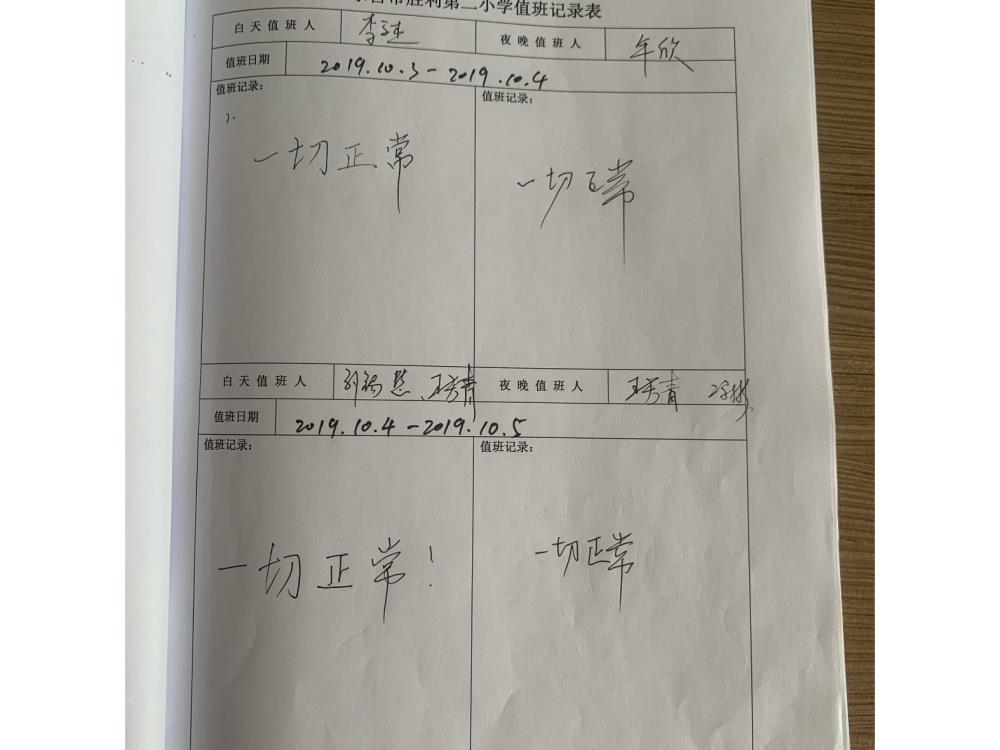 市胜利第二小学值班记录表
白天值班人 李 夜晚值班人 年欣
值班日期 2019.10.3-2019.10.4
值班记录: 值班记录:
一切正常 一切正常
白天值班人 慧、王秀青 夜晚值班人 王秀青
值班日期 2019.10.4-2019.10.5
值班记录: 值班记录:
一切正常! 一切正常